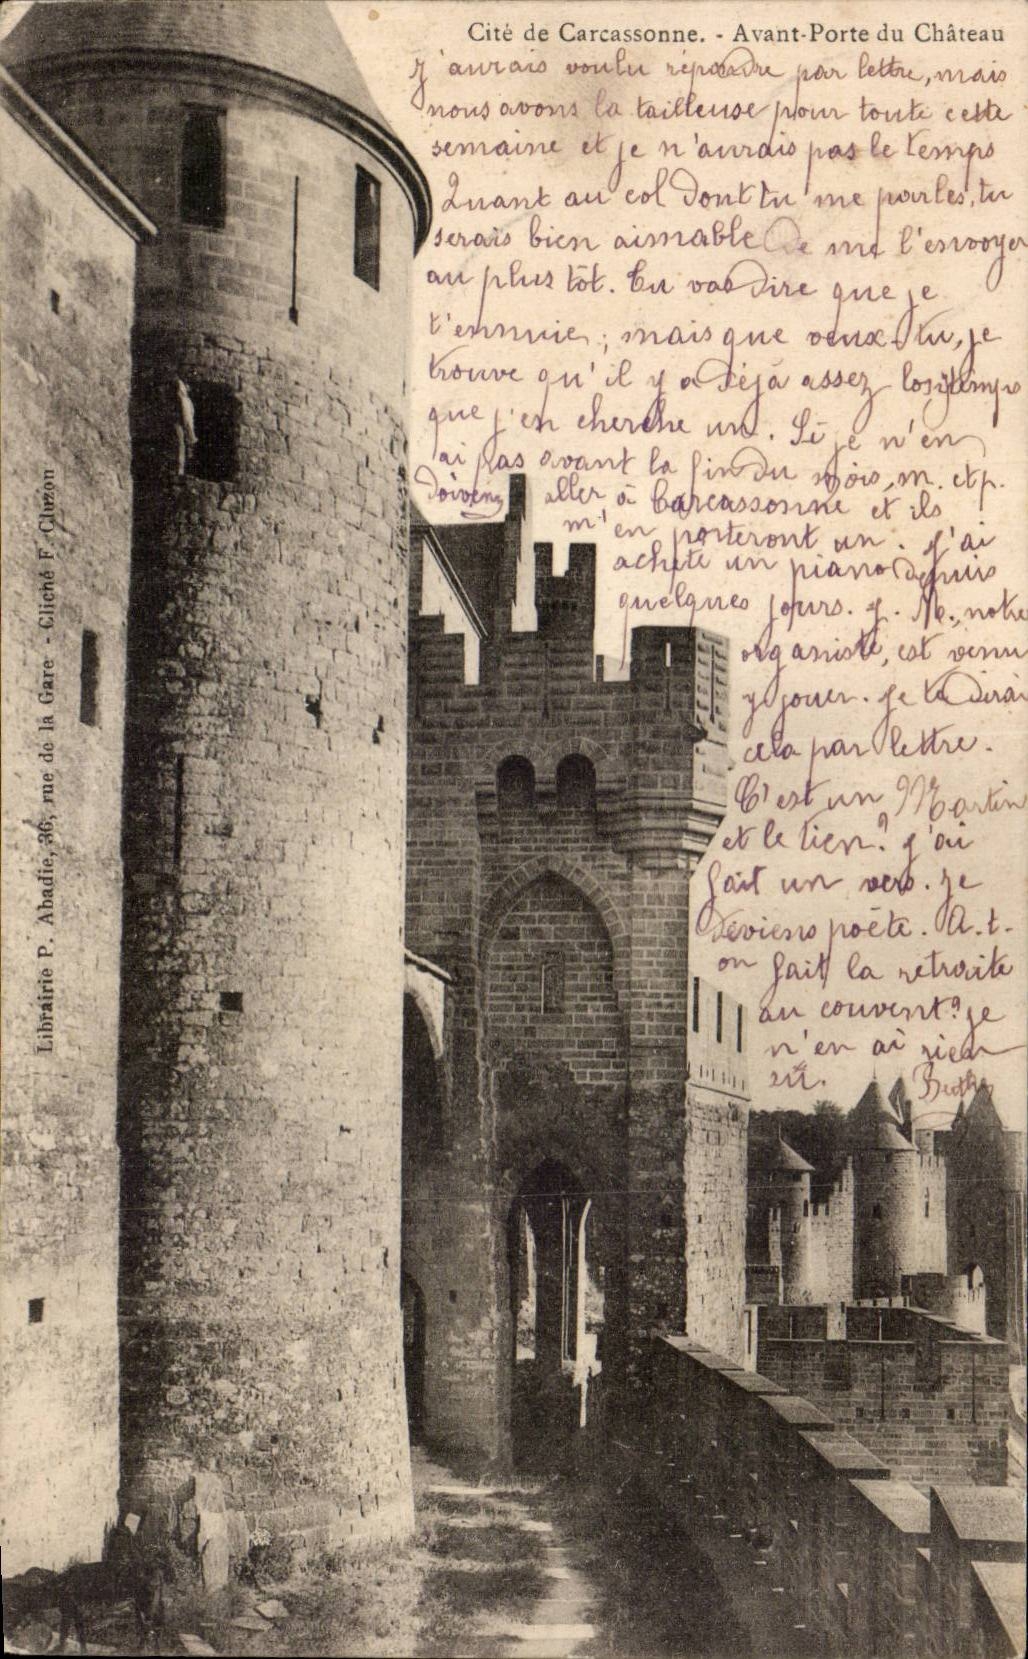 Cité de Carcassonne. - Avant-Porte du Château
J'aurais voulu répondre par lettre, mais
nous avons la tailleuse pour toute cette
semaine et je n'aurais pas le temps
Quant au col dont tu me parles, tu
serais bien aimable de me l'envoyer
au plus tôt. Tu vas dire que je
t'ennuie; mais que veux-tu, je
trouve qu'il y a déjà assez longtemps
que j'en cherche un. Si je n'en
ai pas avant la fin du mois, m. et p.
doivent aller à Carcassonne et ils
m'en porteront un. J'ai
acheté un piano depuis
quelques jours. J. M., notre
organiste, est venu
y jouer. Je te dirai
cela par lettre.
C'est un Martin
et le tien? J'ai
fait un vers. Je
deviens poète. A.t.
on fait la retraite
au couvent? Je
n'en ai rien
su. Berthe
Librairie P. Abadie, 36, rue de la Gare - Cliché F. Cluzon